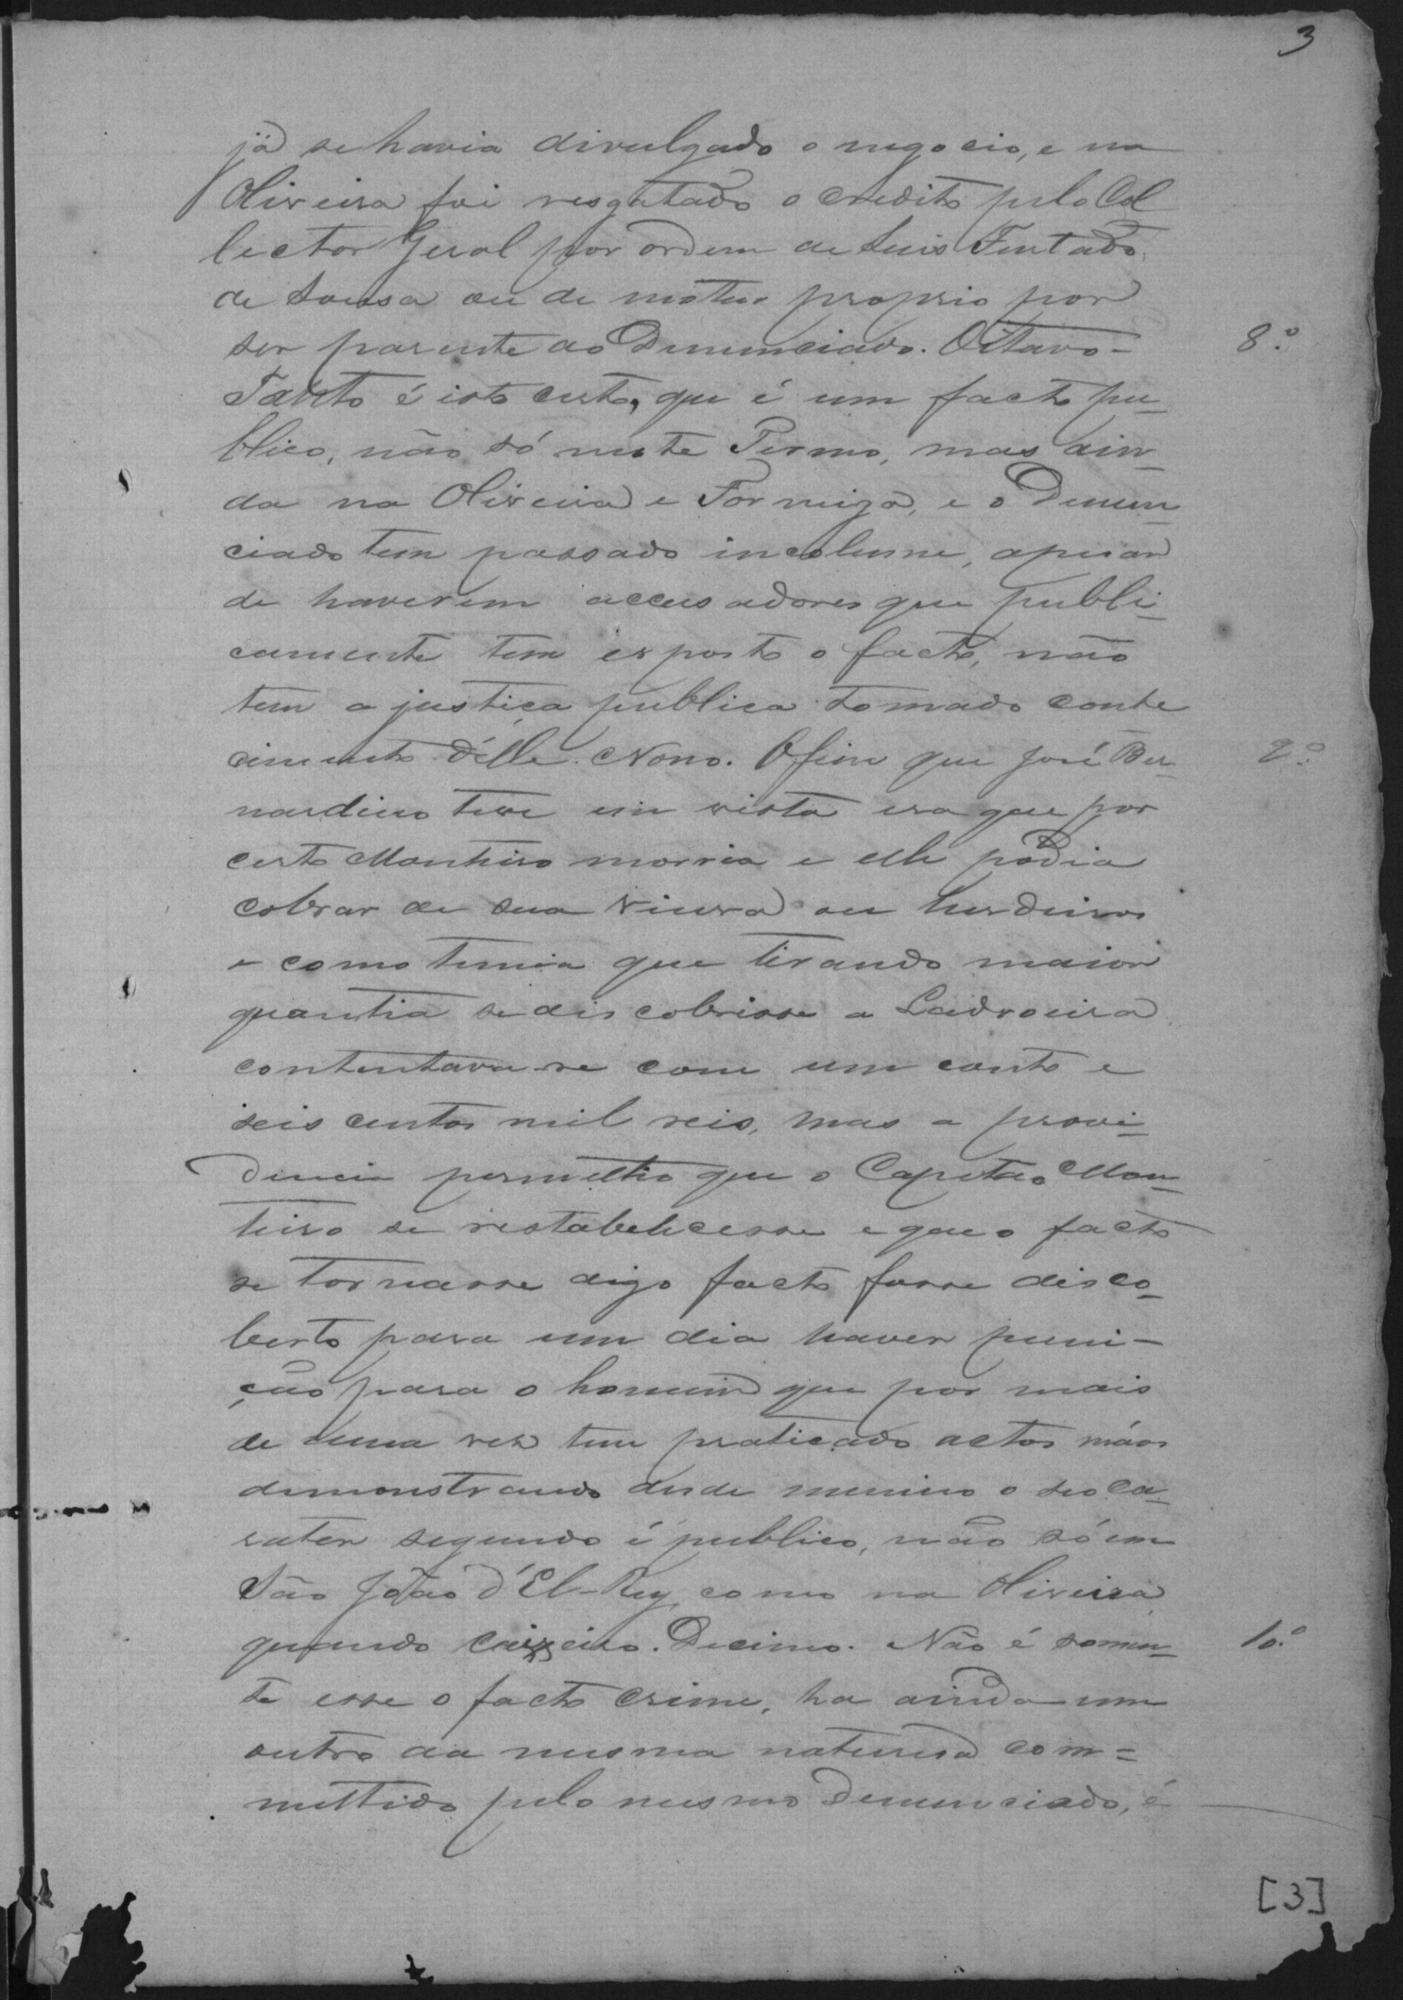 3
já se havia divulgado o negocio, e na
Oliveira foi resgatado o credito pelo Col
lector Geral por ordem de Luis Furtado
de Sousa ou de motu proprio por
ser parente do Denunciado. Oitavo- 8º
Tanto é isto certo, que é um facto pu-
blico, não só neste Termo, mas ain-
da na Oliveira e Formiga, e o Denun-
ciado tem passado incolume, apesar
de haverem accusadores que publi-
camente tem exposto o facto, não
tem a justiça publica tomado conhe
cimento d'elle. Nono. O fim que José Ber- 9º
nardino teve em vista era que por
certo Monteiro morria e elle podia
cobrar de sua viuva ou herdeiros
e como temia que tirando maior
quantia se discobrisse a Ladroeira
contentava-se com um conto e
seis centos mil reis, mas a provi-
dencia permettio que o Capitão Mon-
teiro se restabelecesse e que o facto
se tornasse digo facto fosse disco-
berto para um dia haver puni-
ção para o homem que por mais
de uma vez tem praticado actos máos
demonstrando desde menino o seo ca-
rater segundo é publico, não só em
São João d'El-Rey como na Oliveira
quando caixeiro. Decimo. Não é somen- 10º
te esse o facto crime, ha ainda um
outro da mesma naturesa com=
mettido pelo mesmo Denunciado, é
[3]